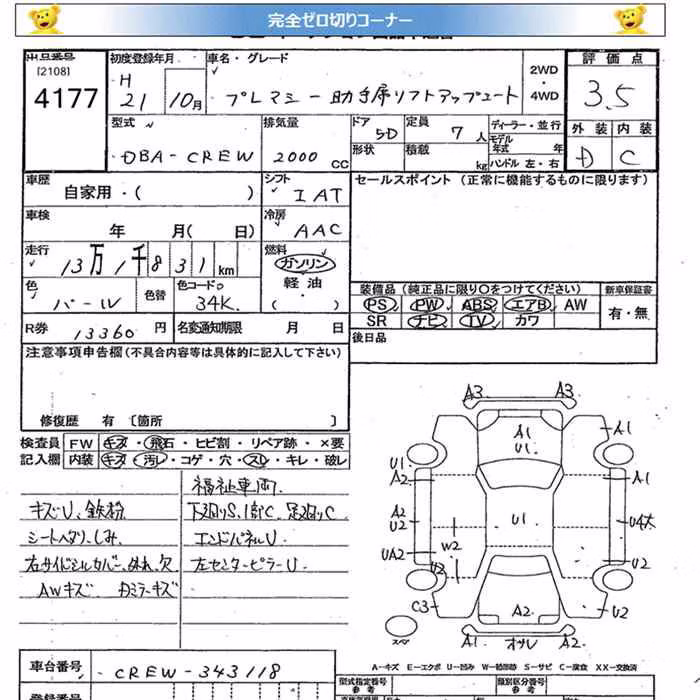 完全ゼロ切りコーナー
出品番号 初度登録年月 車名・グレード 2WD ・ 4WD 評価点
(2108)
4177
H 21 10月 プレマシー助手席リフトアップシート 3.5
型式 排気量 ドア 5D 定員 7人 ディーラー・並行 外装 内装
DBA-CREW 2000 CC 形状 積載 kg モデル年式 年 ハンドル 左・右 D C
車歴 自家用・( ) シフト IAT セールスポイント (正常に機能するものに限ります)
車検 年 月( 日) 冷房 AAC
走行 13万1千831km 燃料 ガソリン 軽油 ( )
色 パール 色替 色コードNo 34K
装備品 (純正品に限り○をつけてください) 新車保証書
PS PW ABS エアB AW 有・無
SR ナビ TV カワ
R券 13360円 名変通知期限 月 日 後日品
注意事項申告欄 (不具合内容等は具体的に記入して下さい)
修復歴 有 〔箇所 〕
検査員 FW キズ・飛石・ヒビ割・リペア跡・×要
記入欄 内装 キズ・汚レ・コゲ・穴・スレ・キレ・破レ
福祉車両
キズU、鉄粉 下廻りS、1部C、足廻りC
シートヘタリ、しみ エンドパネルU
右サイドシルカバーぬれ、欠 左センターピラーU
AWキズ Rミラーキズ
A3 A3
A1 U1 A1
U1 A2 A1
A2 U2 U1 U4大
UA2 W2 U2 U2
C3 A2 U2
スペ A1 オソレ A2
A-キズ E-エクボ U-凹み W-補修跡 S-サビ C-腐食 XX-交換済
車台番号 CREW-343118
型式指定番号 参考 類別区分番号 参考
登録番号